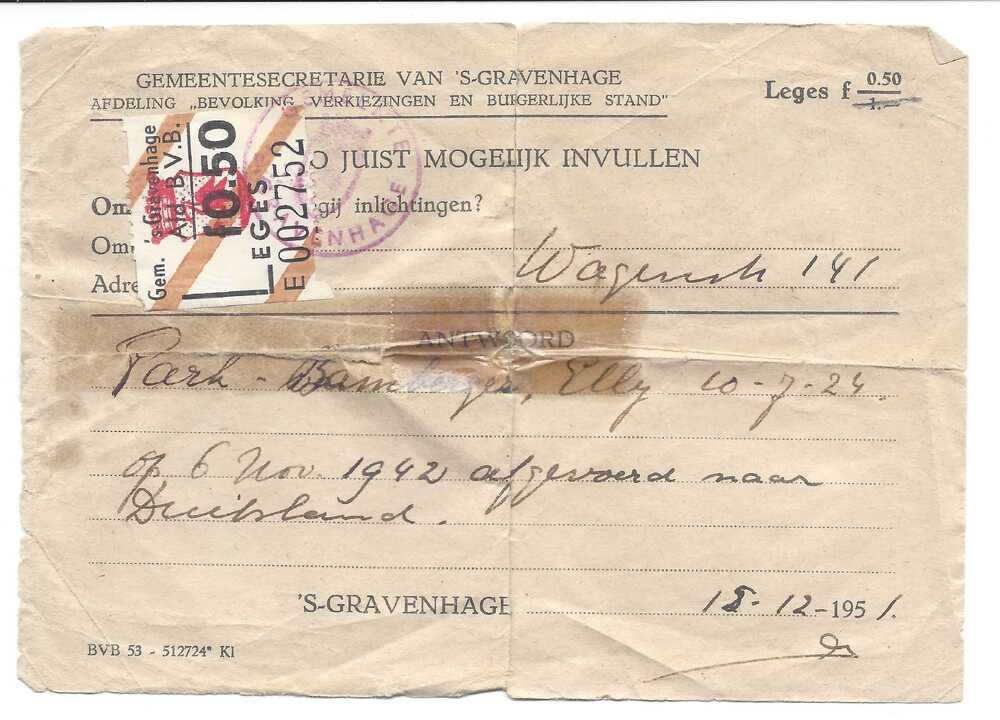 GEMEENTESECRETARIE VAN 'S-GRAVENHAGE
AFDELING „BEVOLKING, VERKIEZINGEN EN BURGERLIJKE STAND"
Leges f 0.50
1.—
O JUIST MOGELIJK INVULLEN
Om gij inlichtingen?
Om
Adre Wagenstr 141
Gem. 's-Gravenhage
Afd. B.V.B.
f0.50
EGES
E 002752
ANTWOORD
Park - Bamberger, Elly 10-7-24.
op 6 Nov. 1942 afgevoerd naar
Duitsland.
'S-GRAVENHAGE 18-12-1951.
BVB 53 - 512724* Kl